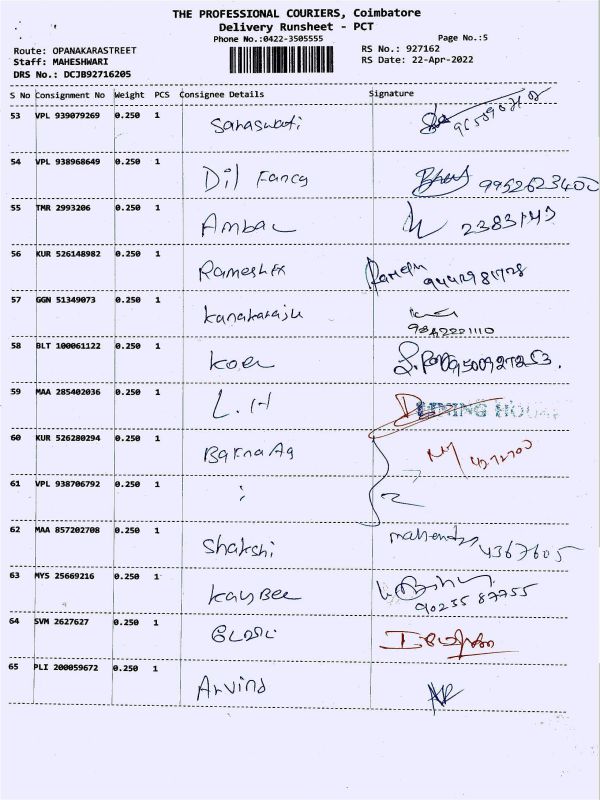 THE PROFESSIONAL COURIERS, Coimbatore
Delivery Runsheet - PCT
Phone No.:0422-3505555 Page No.:5
Route: OPANAKARASTREET RS No.: 927162
Staff: MAHESHWARI RS Date: 22-Apr-2022
DRS No.: DCJB92716205
S No Consignment No Weight PCS Consignee Details Signature
53 VPL 939079269 0.250 1 Saraswati
54 VPL 938968649 0.250 1 Dil Fancy 9952623400
55 TMR 2993206 0.250 1 Ambal 2383147
56 KUR 526148982 0.250 1 Rameshkk Ramesh 9442981728
57 GGN 51349073 0.250 1 Kanakaraju 9842221110
58 BLT 100061122 0.250 1 Koel 9500927253.
59 MAA 285402036 0.250 1 L.H HOUSE
60 KUR 526280294 0.250 1 4272700
61 VPL 938706792 0.250 1 ;
62 MAA 857202708 0.250 1 Shakshi mahendra 4367605
63 MYS 25669216 0.250 1 KayBee 90255 87755
64 SVM 2627627 0.250 1
65 PLI 200059672 0.250 1 Arvind